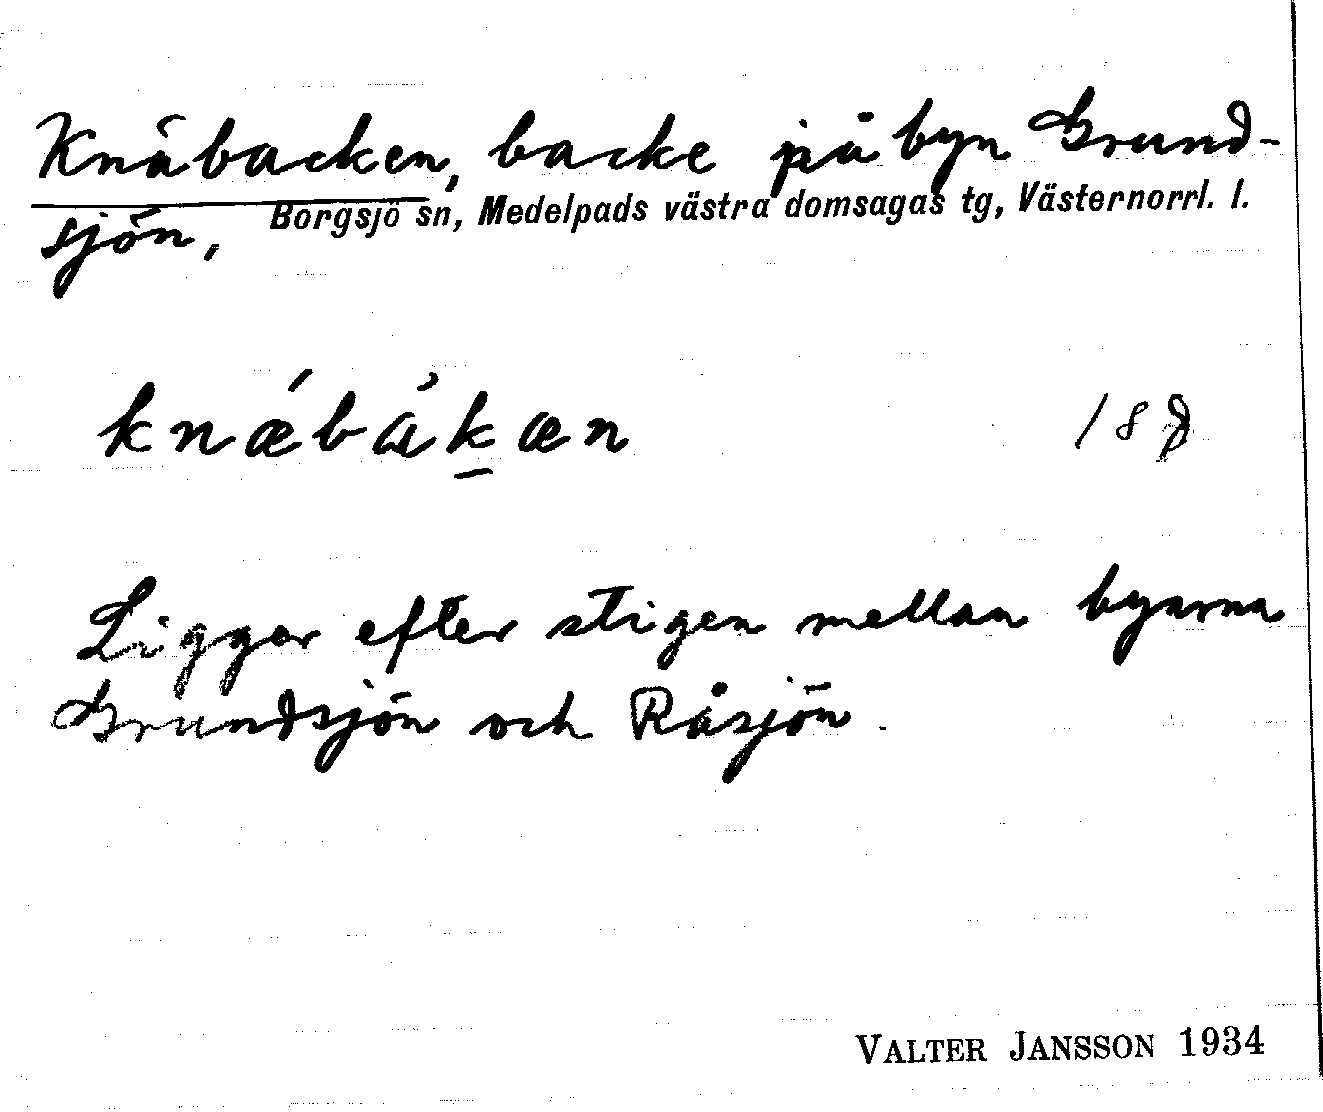 Knäbacken, backe på byn Grund-
sjön, Borgsjö sn, Medelpads västra domsagas tg, Västernorrl. l.
knǽbàk̠æn
Ligger efter stigen mellan byarna
Grundsjön och Råsjön.
VALTER JANSSON 1934